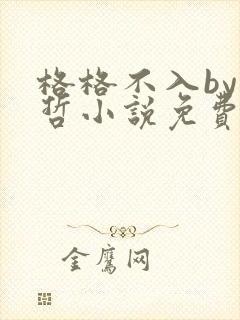 格格不入by
哲小説免費
金鷹网